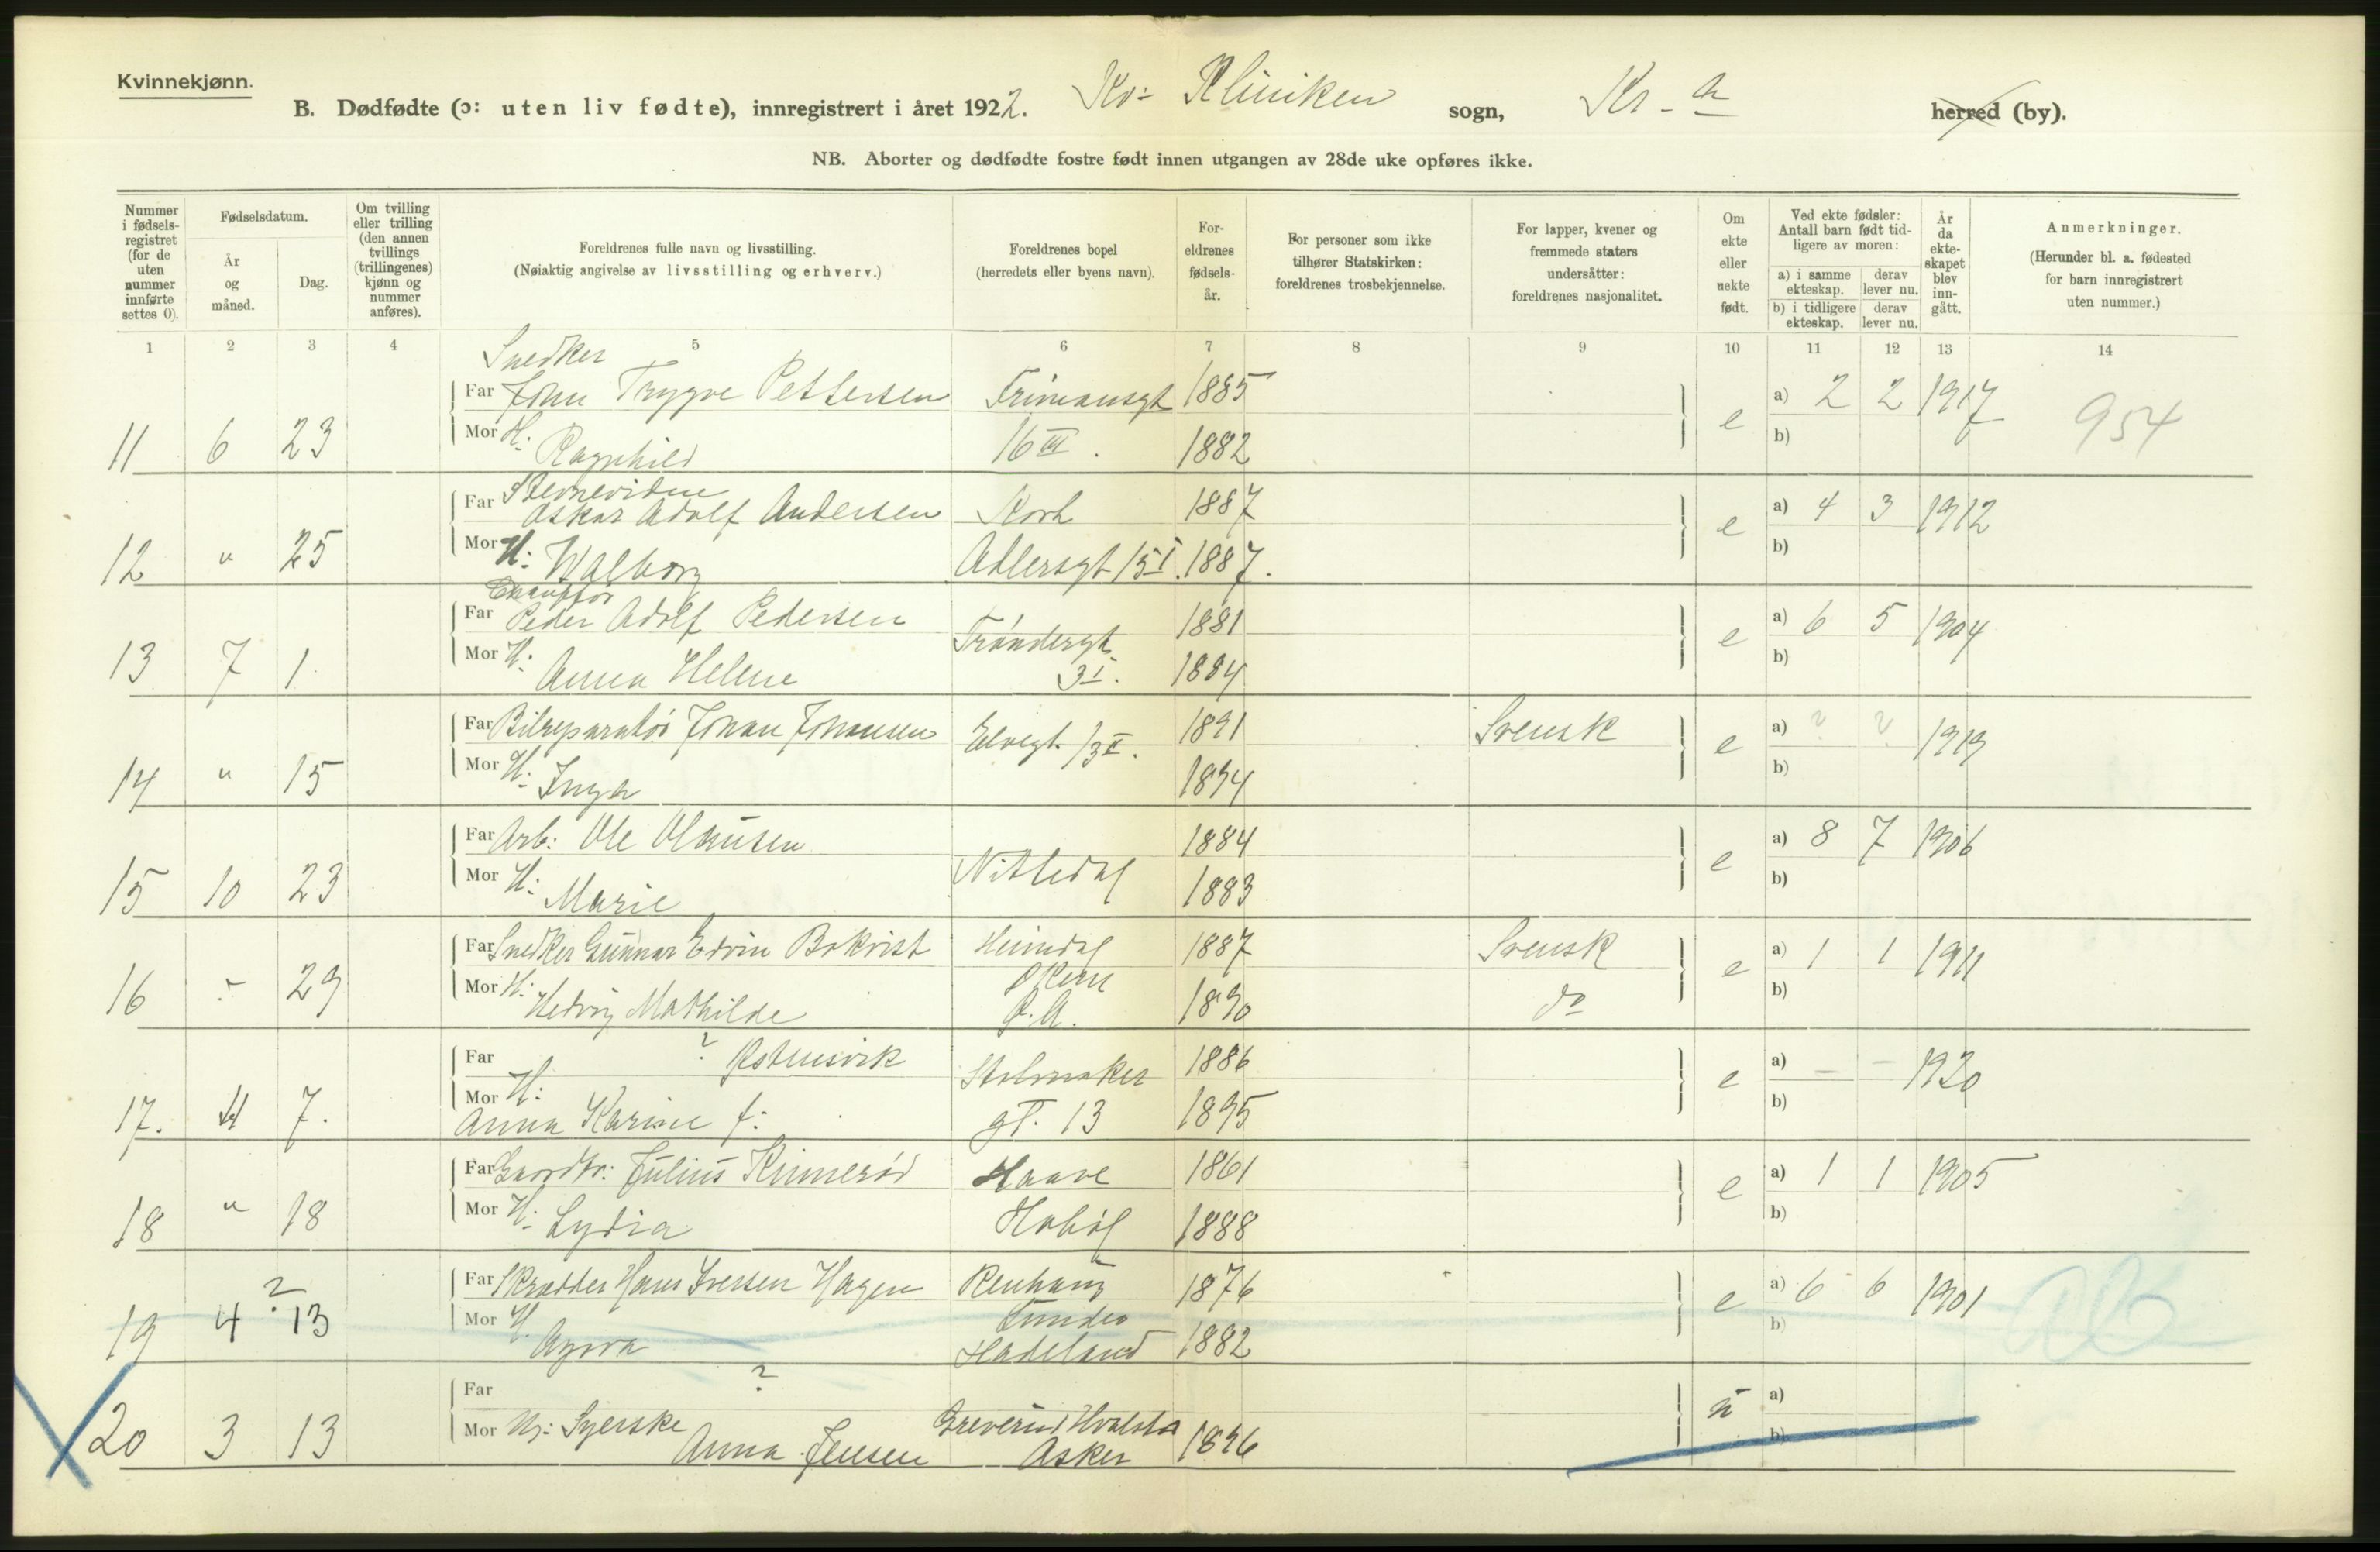 Kvinnekjønn.
B. Dødfødte (ɔ: uten liv fødte), innregistrert i året 1922. Kv: Kliniken sogn, Kr-a herred (by).
NB. Aborter og dødfødte fostre født innen utgangen av 28de uke opføres ikke.
Nummer i fødsels-registret (for de uten nummer innførte settes 0).
Fødselsdatum.
År og måned.
Dag.
Om tvilling eller trilling (den annen tvillings (trillingenes) kjønn og nummer anføres).
Foreldrenes fulle navn og livsstilling.
(Nøiaktig angivelse av livsstilling og erhverv.)
Foreldrenes bopel
(herredets eller byens navn).
For-eldrenes fødsels-år.
For personer som ikke tilhører Statskirken: foreldrenes trosbekjennelse.
For lapper, kvener og fremmede staters undersåtter: foreldrenes nasjonalitet.
Om ekte eller uekte født.
Ved ekte fødsler: Antall barn født tid-ligere av moren:
a) i samme ekteskap.
derav lever nu.
b) i tidligere ekteskap.
derav lever nu.
År da ekte-skapet blev inn-gått.
Anmerkninger.
(Herunder bl. a. fødested for barn innregistrert uten nummer.)
1 2 3 4 5 6 7 8 9 10 11 12 13 14
Snedker
Far John Trygve Pettersen Frimansgt 1885 a) 2 2 1917
11 6 23 Mor H. Ragnhild 16 III. 1882 e b) 954
Stevnevidne
Far Oskar Adolf Andersen Kort 1887 a) 4 3 1912
12 " 25 Mor H. Walborg Adlersgt 15 I. 1887. e b)
Chauffør
Far Peder Adolf Pedersen Trøndergt. 1881 a) 6 5 1904
13 7 1 Mor H. Anna Helene 3 I. 1884 e b)
Far Bilreparatør Johan Johansen Elvegt. 13 II. 1891 Svensk a) ? ? 1919
14 " 15 Mor H. Inga 1894 e b)
Far Arb: Ole Olausen Nittedal 1884 a) 8 7 1906
15 10 23 Mor H: Marie 1883 e b)
Far Snedker Gunnar Edvin Bokvist Heimdal 1887 Svensk a) 1 1 1911
16 - 29 Mor H: Hedvig Mathilde Økern Ø. A. 1890 do e b)
Far ? Østensvik Stolmaker 1886 a) - - 1920
17. 11 7. Mor H: Anna Karine f: gt. 13 1895 e b)
Far Gaardbr: Julius Kinnerød Haave 1861 a) 1 1 1905
18 " 18 Mor H. Lydia Hobøl 1888 e b)
Far Skrædder Hans Iversen Hagen Renhaug 1876 a) 6 6 1901
19 4 ? 13 Mor H. Agova Lunder Hadeland 1882 e b)
Far ? a)
20 3 13 Mor Ug: Syerske Anna Jensen Greverud Hvalstad Asker 1896 u b)